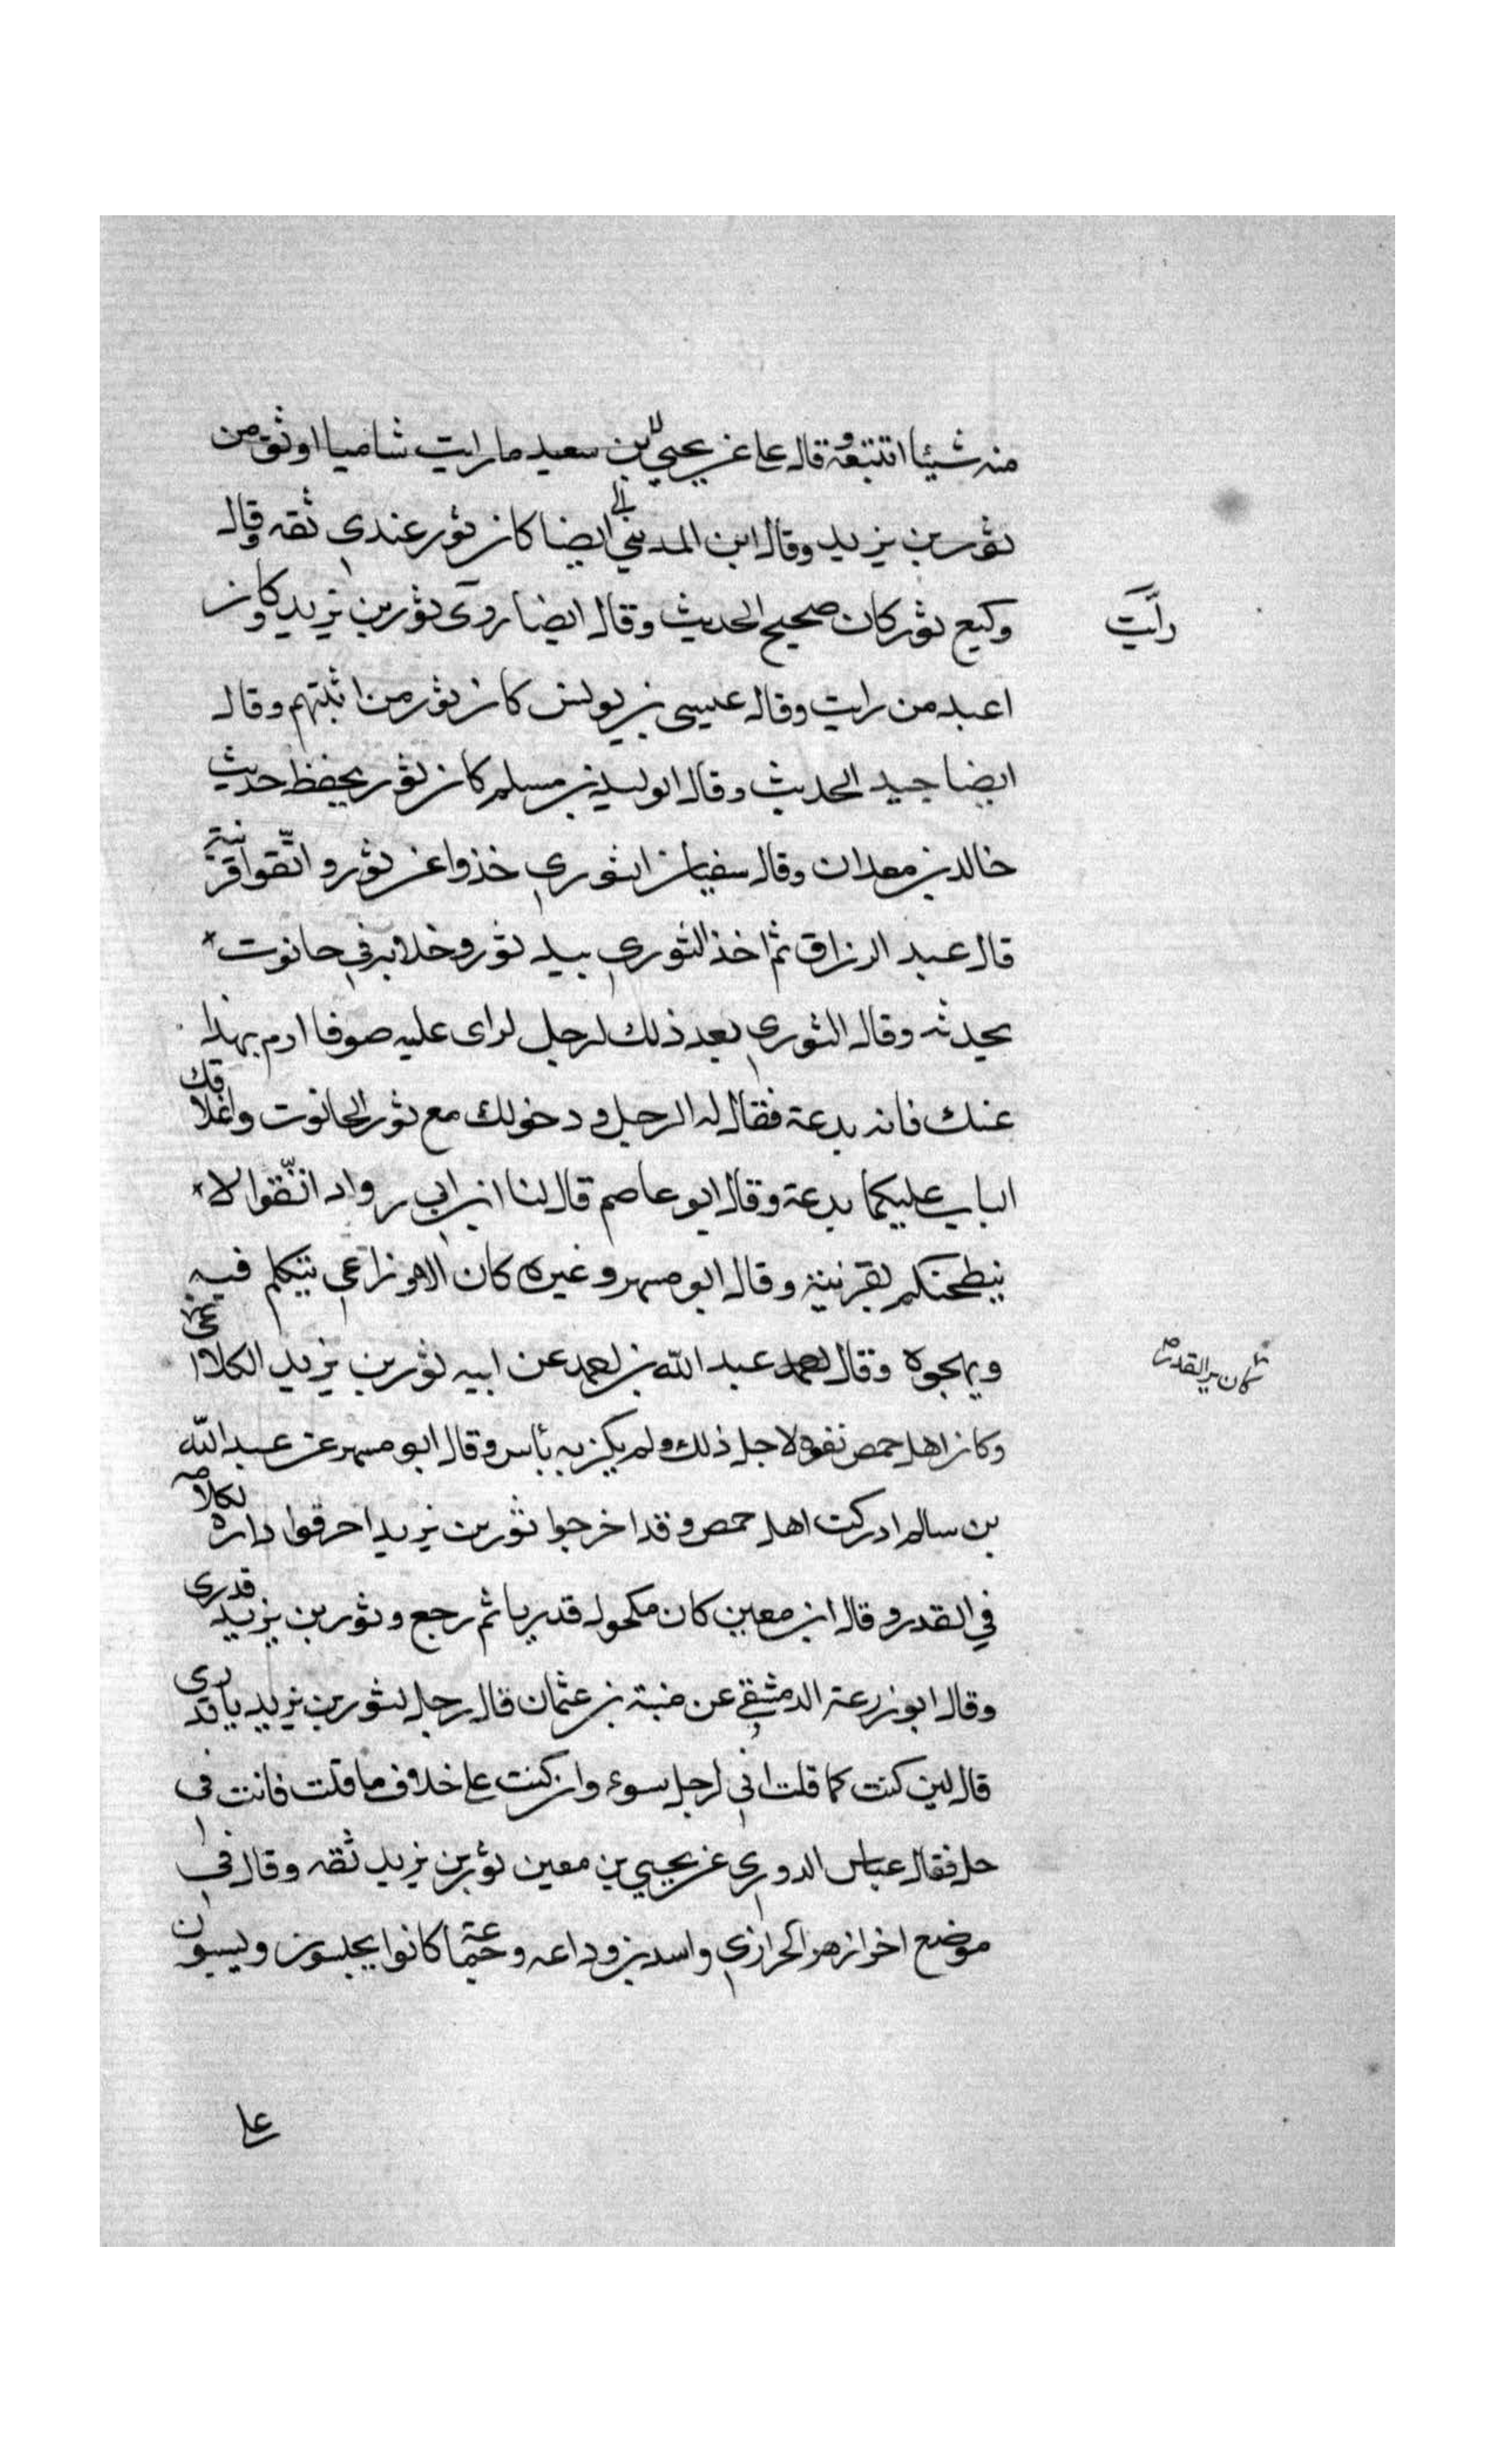 منه شيئا اتتبعه وقال علي عن يحيي بن سعيد ما رايت شاميا اوثق من
ثور بن يزيد وقال ابن المديني ايضا كان ثور عندي ثقه وقال
وكيع ثور كان صحيح الحديث وقال ايضا روى ثور بن يزيد وكان
رأيت
اعبد من رايت وقال عيسى بن يونس كان ثور من اثبتهم وقال
ايضا جيد الحديث وقال الوليد بن مسلم كان ثور يحفظ حديث
خالد بن معدان وقال سفيان الثوري خذوا عن ثور واتّقوا قرنيه
قال عبد الرزاق ثم اخذ الثوري بيد ثور وخلا به في حانوت
يحدثه وقال الثوري بعد ذلك لرجل راى عليه صوفا ارم بهذا
عنك فانه بدعة فقال له الرجل ودخولك مع ثور الحانوت واغلاقك
الباب عليكما بدعة وقال ابو عاصم قال لنا ابن ابي رواد اتّقوا لا
ينطحنكم بقرنيه وقال ابو مسهر وغيره كان الاوزاعي يتكلم فيه
ويهجوه وقال عبد الله بن احمد عن ابيه ثور بن يزيد الكلاعي
كان يرى القدر
وكان اهل حمص نفوه لاجل ذلك ولم يكن به بأس وقال ابو مسهر عن عبد الله
بن سالم ادركت اهل حمص وقد اخرجوا ثور بن يزيد احرقوا داره لكلامه
في القدر وقال ابن معين كان مكحول قدريا ثم رجع وثور بن يزيد قدري
وقال ابو زرعة الدمشقي عن منبة بن عثمان قال رجل لثور بن يزيد يا قدري
قال لين كنت كما قلت اني لرجل سوء وان كنت علي خلاف ما قلت فانت في
حل فقال عباس الدوري عن يحيي بن معين ثور بن يزيد ثقه وقال في
موضع اخر ازهر الحرازي واسد بن وداعه وجماعة كانوا يجلسون ويسبون
علي